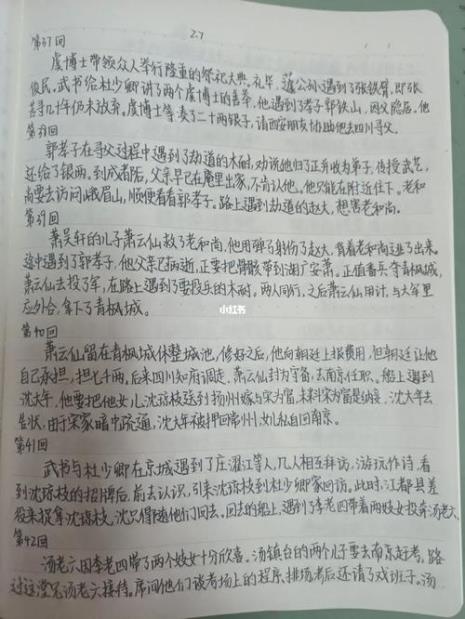 2.7
第37回
虞博士带领众人举行隆重的祭祀大典,礼毕,蘧公孙遇到了张铁臂,即张
俊民,武书给杜少卿讲了两个虞博士的善举,他遇到了孝子郭铁山,因父隐居,他
苦寻几十年仍未放弃。虞博士等凑了二十两银子,请西安朋友协助他去四川寻父。
第38回
郭孝子在寻父过程中遇到了劫道的木耐,劝说他归了正并收为弟子,传授武艺,
还给了银两。到成都后,父亲早已在庵里出家,不肯认他,他只能在附近住下。老和
尚要去访问峨眉山,顺便看看郭孝子。路上遇到劫道的赵大,想害老和尚。
第39回
萧吴轩的儿子萧云仙救了老和尚,他用弹子射伤了赵大,背着老和尚逃了出来。
途中遇到了郭孝子,他父亲已病逝,正要把骨骸带到湖广安葬。正值番兵夺青枫城,
萧云仙去投了军,在路上遇到了要投兵的木耐。两人同行,之后萧云仙用计,与大军里
应外合,拿下了青枫城。
小红书
第40回
萧云仙留在青枫城休整城池,修好之后,他向朝廷上报费用,但朝廷让他
自己承担,担七千两。后来四川知府调走,萧云仙封为守备,去南京任职。船上遇到
沈大年,他要把他女儿沈琼枝送到扬州嫁与宋为富,未料宋为富是纳妾,沈大年去
告状,由于宋家暗中疏通,沈大年被押回常州,女儿私自回南京。
第41回
武书与杜少卿在京城遇到了庄濯江等人,几人相互拜访,游玩作诗,看
到沈琼枝的招牌后,前去认识,引来沈琼枝到杜少卿家回访。此时,江都县差
役来捉拿沈琼枝,沈只得随他们回去。回去的船上,遇到了李老四带着两妓女投奔汤老六
第42回
汤老六因李老四带了两个妓女十分欣喜。汤镇台的两个儿子要去南京赶考,路
过这,堂兄汤老六接待。席间他们谈考场上的程序、排场,考后还请了戏班子。汤